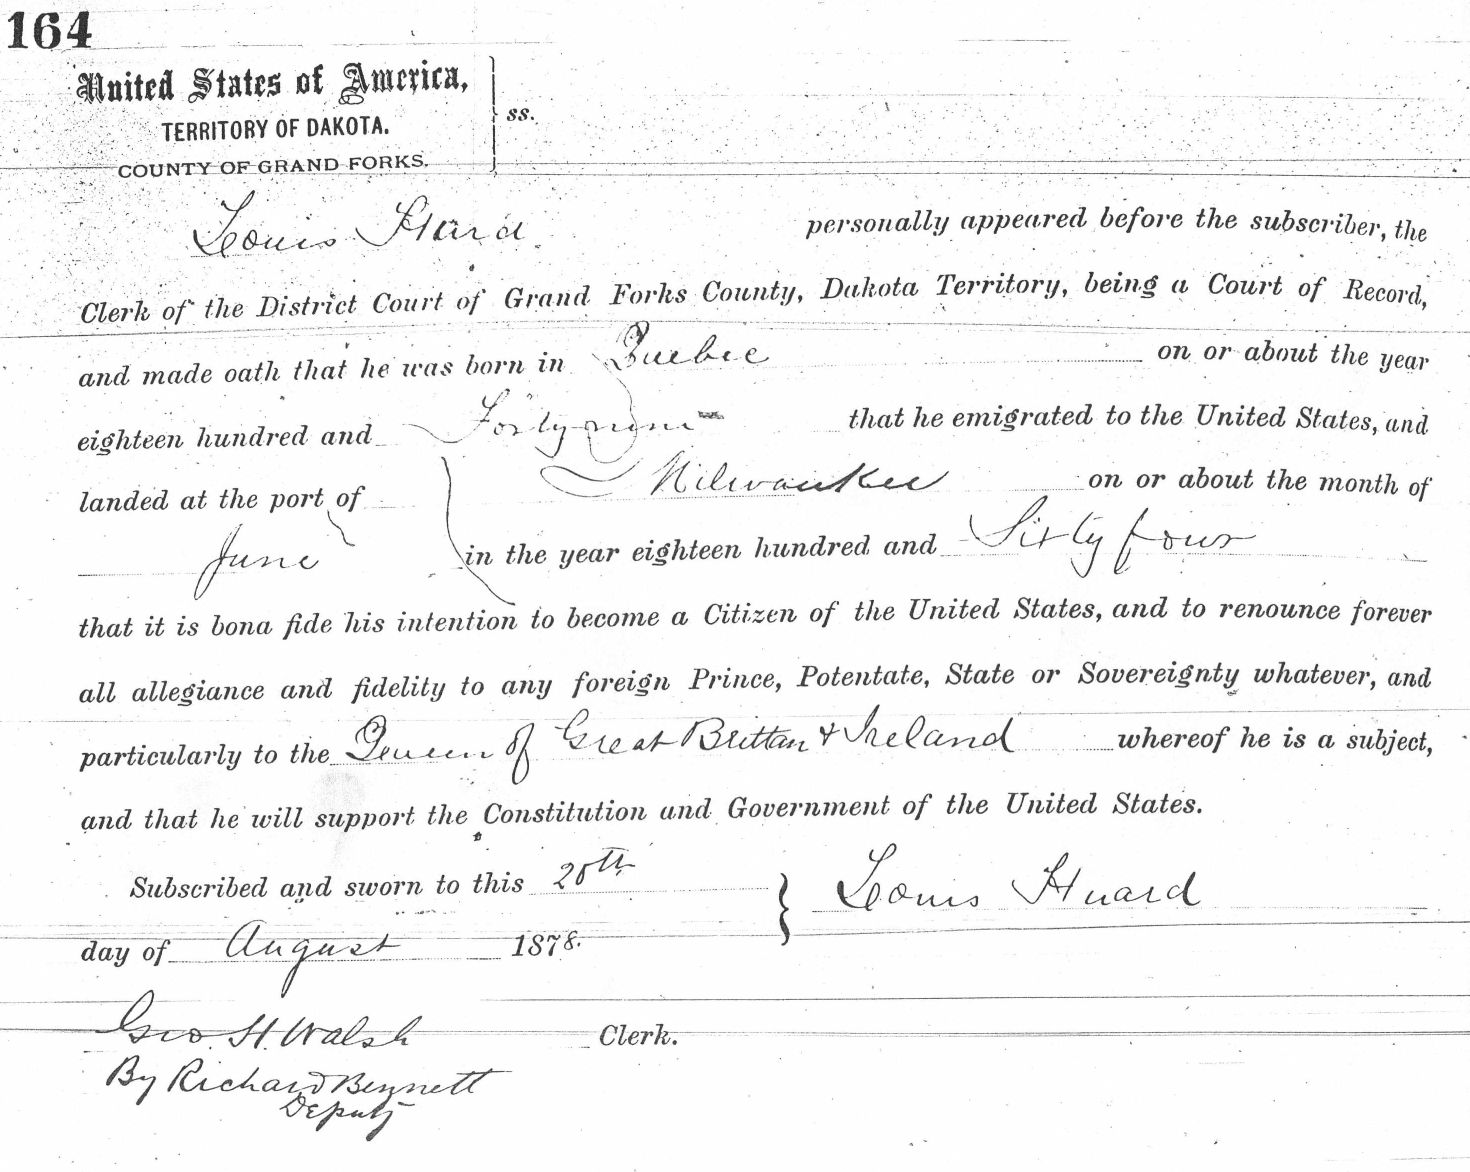 164
United States of America,
TERRITORY OF DAKOTA.
COUNTY OF GRAND FORKS.
ss.
Louis Huard personally appeared before the subscriber, the
Clerk of the District Court of Grand Forks County, Dakota Territory, being a Court of Record,
and made oath that he was born in Quebec on or about the year
eighteen hundred and Forty nine that he emigrated to the United States, and
landed at the port of Milwaukee on or about the month of
June in the year eighteen hundred and Sixty four
that it is bona fide his intention to become a Citizen of the United States, and to renounce forever
all allegiance and fidelity to any foreign Prince, Potentate, State or Sovereignty whatever, and
particularly to the Queen of Great Brittan & Ireland whereof he is a subject,
and that he will support the Constitution and Government of the United States.
Subscribed and sworn to this 20th } Louis Huard
day of August 1878.
Geo. H. Walsh Clerk.
By Richard Bennett
Deputy